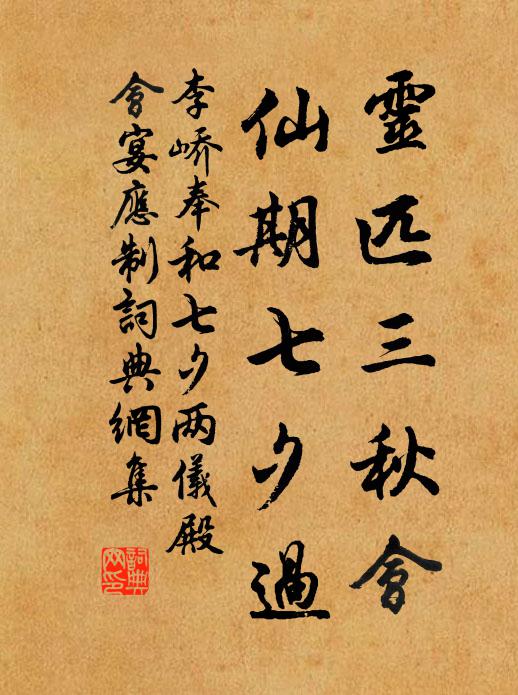 靈匹三秋會
仙期七夕過
李嶠奉和七夕两儀殿
會宴應制詞典網集
詞典網印